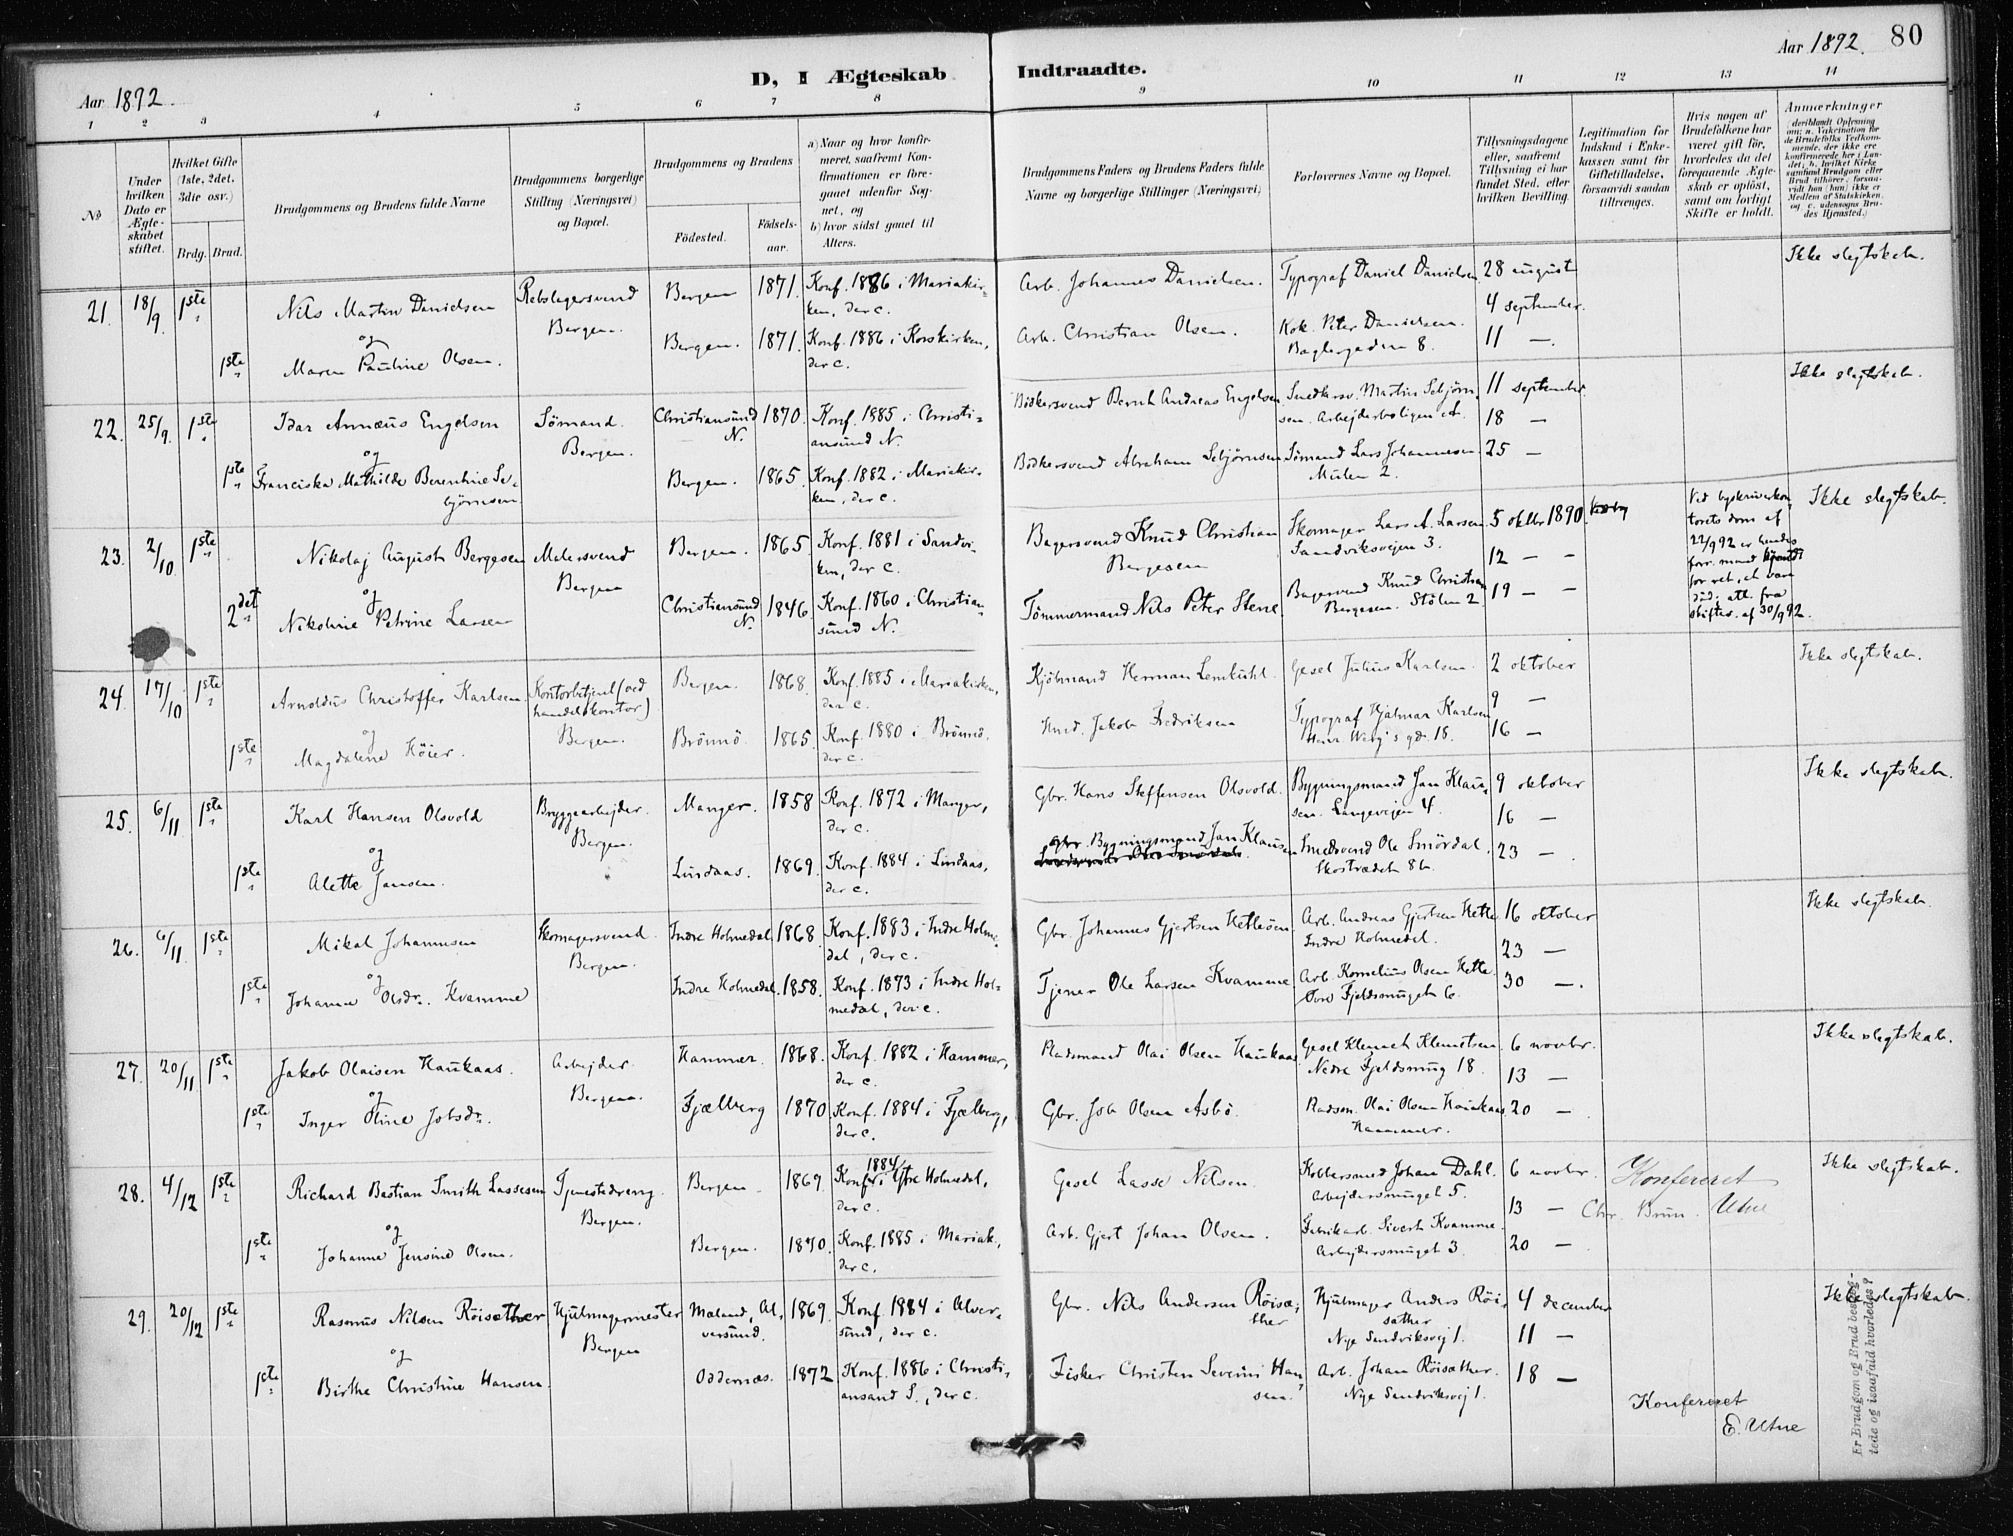 Aar 1892.
D, I Ægteskab Indtraadte.
Aar 1892. 80
1 2 3 4 5 6 7 8 9 10 11 12 13 14
No
Under hvilken Dato er Ægteskabet stiftet.
Hvilket Gifte (1ste, 2det. 3die osv.)
Brdg. Brud.
Brudgommens og Brudens fulde Navne
Brudgommens borgerlige Stilling (Næringsvei) og Bopæl.
Brudgommens og Brudens
Födested.
Födselsaar.
a) Naar og hvor konfirmeret, saafremt Konfirmationen er foregaaet udenfor Sognet, og
b) hvor sidst gaaet til Alters.
Brudgommens Faders og Brudens Faders fulde Navne og borgerlige Stillinger (Næringsvei)
Forlovernes Navne og Bopæl.
Tillysningsdagene eller, saafremt Tillysning ei har fundet Sted, efter hvilken Bevilling.
Legitimation for Indskud i Enkekassen samt for Giftetilladelse, forsaavidt saadan tiltrænges.
Hvis nogen af Brudefolkene har været gift för, hvorledes da det foregaaende Ægteskab er oplöst, samt om lovligt Skifte er holdt.
Anmærkninger
21. 18/9. 1ste Nils Martin Danielsen Rebslagersvend Bergen. Bergen 1871. Konf. 1886 i Mariakirken, der c. Arb. Johannes Danielsen. Typograf Daniel Danielsen 28 august Ikke slegtskab.
og 4 september.
1ste Maren Pauline Olsen. Bergen. 1871. Konf. 1886 i Korskirken, der c. Arb. Christian Olsen. Kok. Peter Danielsen. Baglergaden 8. 11 —.
22. 25/9. 1ste Idar Annæus Engelsen Sömand. Bergen. Christiansund N. 1870. Konf. 1885 i Christiansund N. Bödkersvend Bernh Andreas Engelsen. Smedkarsv. Martin Sebjörnsen. Arbejderboligen 11 september. Ikke slegtskab.
og 18 —
1ste Franciska Mathilde Berentine Sebjörnsen Bergen. 1865. Konf. 1882 i Mariakirken, der c. Bödkersvend Abraham Sebjörnsen Sömand Lars Johannesen Mulen 2. 25 —
23. 2/10. 1ste Nikolaj August Bergesen Malersvend Bergen Bergen. 1865 Konf. 1881 i Sandviken, der c. Bagersvend Knud Christian Bergesen Skomager Lars A. Larsen Sandviksvejen 3. 5 oktbr 1890. Ved byskriverkontorets dom af 22/9 92 er hendes forr. mand kjendt for ret, at være död. att. fra skifter. af 30/9 92. Ikke slegtskab.
og 12 — —
2det Nikoline Petrine Larsen Christiansund N. 1846. Konf. 1860 i Christiansund N. Tömmermand Nils Peter Stene Bagersvend Knud Christian Bergesen. Stölen 2. 19 — —
24. 17/10 1ste Arnoldus Christoffer Karlsen Kontorbetjent (ved handelskontor) Bergen. Bergen. 1868. Konf. 1885 i Mariakirken, der c. Kjöbmand Herman Lemkuhl. Gesel Julius Karlsen. 2 oktober Ikke slegtskab.
og 9 —
1ste Magdalene Höier. Brönnö. 1865. Konf. 1880 i Brönnö. der c. Hmd. Jakob Fredriksen Typograf Hjalmar Karlsen 18. 16 —
25. 6/11 1ste Karl Hansen Olsvold Bryggearbejder. Bergen. Manger. 1858 Konf. 1872 i Manger, der c. Gbr. Hans Steffensen Olsvold. Bygningsmand Jan Klausen. Langevejen 4. 9 oktober Ikke slegtskab.
og 16 —
1ste Alette Jansen. Lindaas. 1869. Konf. 1884 i Lindaas, der c. Gbr. Bygningsmand Jan Klausen Smedsvend Ole Smördal. Skostrædet 8b. 23 —.
26. 6/11. 1ste Mikal Johannesen Skomagersvend. Bergen. Indre Holmedal. 1868. Konf. 1883 i Indre Holmedal, der c. Gbr. Johannes Gjertsen Hetlesen. Arb. Andreas Gjertsen Hetle. Indre Holmedal. 16 oktober Ikke slegtskab.
og 23 —
1ste Johanne Olsdr. Kvamme Indre Holmedal. 1858. Konf. 1873 i Indre Holmedal, der c. Tjener Ole Larsen Kvamme Arb. Kornelius Olsen Hetle. Övre Fjeldsmuget 6. 30 —.
27. 20/11 1ste Jakob Olaisen Haukaas. Arbejder. Bergen. Hammer. 1868. Konf. 1882 i Hammer, der c. Pladsmand Olai Olsen Haukaas Gesel Klemet Klemetsen. Nedre Fjeldsmug 18. 6 novbr. Ikke slegtskab.
og 13 —
1ste Inger Oline Jobsdr. Fjælberg 1870. Konf. 1884 i Fjælberg, der c. Gbr. Job Olsen Asbö. Pladsm. Olai Olsen Haukaas Hammer. 20 —.
28. 4/12 1ste Richard Bastian Smith Lassesen Tjenestedreng. Bergen. Bergen 1869. Konf. 1884 i Ytre Holmedal, der c. Gesel Lasse Nilsen. Kobbersmed Johan Dahl. Arbejdersmuget 5. 6 novbr. Konfereret Ikke slegtskab.
og 13 — Chr. Brun. Utne
1ste Johanne Jensine Olsen. Bergen. 1870. Konf. 1885 i Mariak., der c. Arb. Gjert Johan Olsen. Fabrikarb. Sivert Kvamme. Arbejdersmuget 3. 20 —.
29. 20/12 1ste Rasmus Nilsen Röisæther Hjulmagermester Bergen Mæland, Alversund. 1869. Konf. 1884 i Alversund, der c. Gbr. Nils Andersen Röisæther Hjulmager Anders Röisæther Nye Sandviksvej 1. 4 december Ikke slegtskab.
og 11 —
1ste Birthe Christine Hansen. Oddernæs. 1872 Konf. 1886 i Christiansand S., der c. Fisker Christen Severin Hansen. Arb. Johan Röisæther. Nye Sandviksvej 1. 18 —
Konfereret
E. Utne
Er Brudgom og Brud beslægtede og isaafald hvorledes?